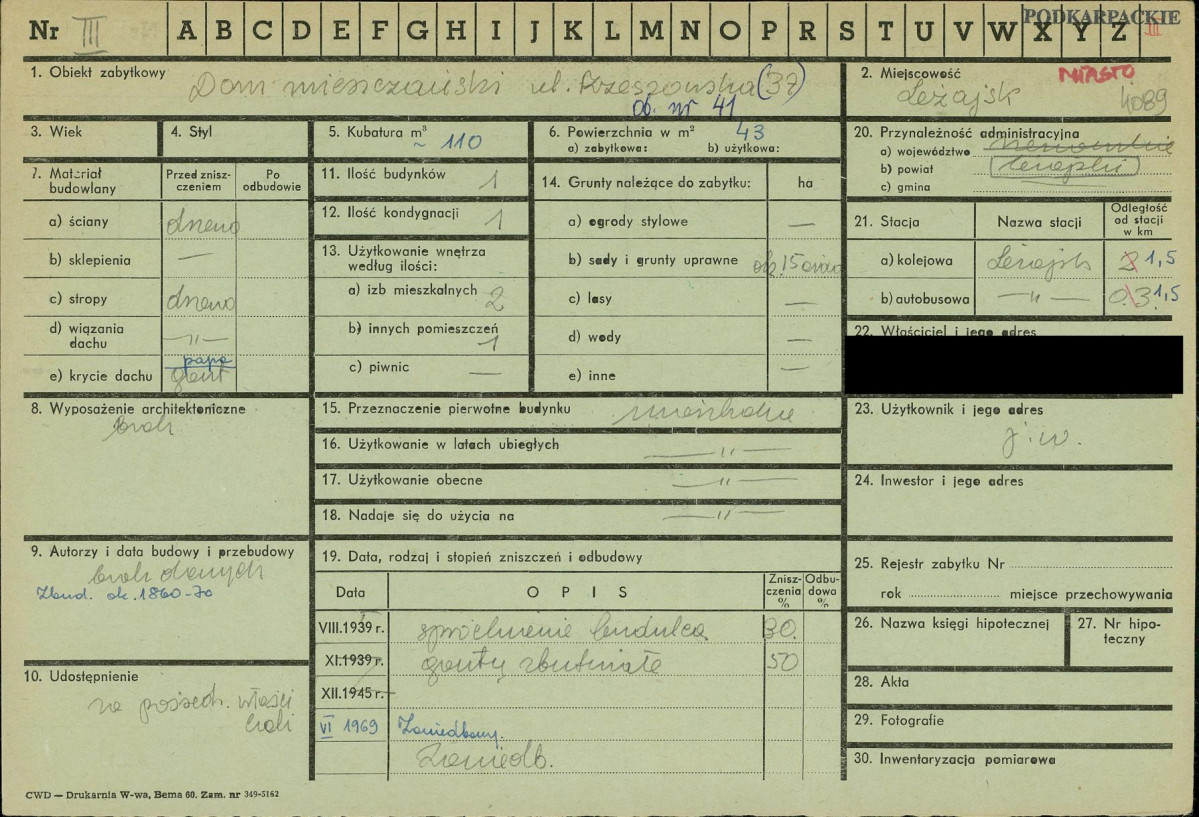 Nr III A B C D E F G H I J K L M N O P R S T U V W X Y Z III
PODKARPACKIE
1. Obiekt zabytkowy
Dom mieszczański ul. Rzeszowska (37)
ob. nr 41
2. Miejscowość MIASTO
Leżajsk 4089
3. Wiek
4. Styl
5. Kubatura m³
~ 110
6. Powierzchnia w m² 43
a) zabytkowa: b) użytkowa:
20. Przynależność administracyjna
a) województwo
b) powiat
c) gmina
7. Materiał budowlany
Przed znisz-
czeniem
Po
odbudowie
a) ściany drewno
b) sklepienia —
c) stropy drewno
d) wiązania
dachu —"—
papa
e) krycie dachu gont
11. Ilość budynków 1
12. Ilość kondygnacji 1
13. Użytkowanie wnętrza
według ilości:
a) izb mieszkalnych 2
b) innych pomieszczeń
1
c) piwnic —
14. Grunty należące do zabytku: ha
a) ogrody stylowe —
b) sady i grunty uprawne ok. 15 arów
c) lasy —
d) wody —
e) inne —
21. Stacja
Nazwa stacji
Odległość
od stacji
w km
a) kolejowa Leżajsk 2 1,5
b) autobusowa —"— 0.3 1,5
22. Właściciel i jego adres
8. Wyposażenie architektoniczne
brak
15. Przeznaczenie pierwotne budynku mieszkalne
16. Użytkowanie w latach ubiegłych —"—
17. Użytkowanie obecne —"—
18. Nadaje się do użycia na —"—
23. Użytkownik i jego adres
j.w.
24. Inwestor i jego adres
9. Autorzy i data budowy i przebudowy
brak danych
Zbud. ok. 1860-70
19. Data, rodzaj i stopień zniszczeń i odbudowy
Data
O P I S
Znisz-
czenia
%
Odbu-
dowa
%
VIII.1939 r. spróchnienie budulca 30.
XI.1939 r. gonty zbutwiałe 50
XII.1945 r.
VI 1969 Zaniedbany.
Zaniedb.
25. Rejestr zabytku Nr
rok miejsce przechowywania
26. Nazwa księgi hipotecznej
27. Nr hipo-
teczny
10. Udostępnienie
za pośredn. właści
cieli
28. Akta
29. Fotografie
30. Inwentaryzacja pomiarowa
CWD — Drukarnia W-wa, Bema 60. Zam. nr 349-5162